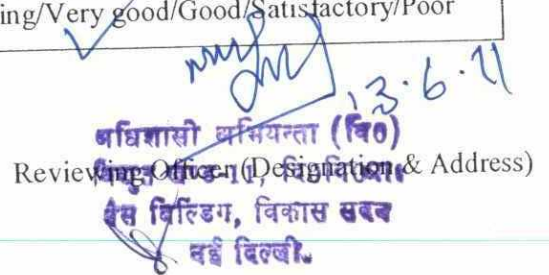 ing/Very good/Good/Satisfactory/Poor
13.6.11
अधिशासी अभियन्ता (वि०)
Reviewing Officer (Designation & Address)
बिल्डिंग, विकास सदन
नई दिल्ली.